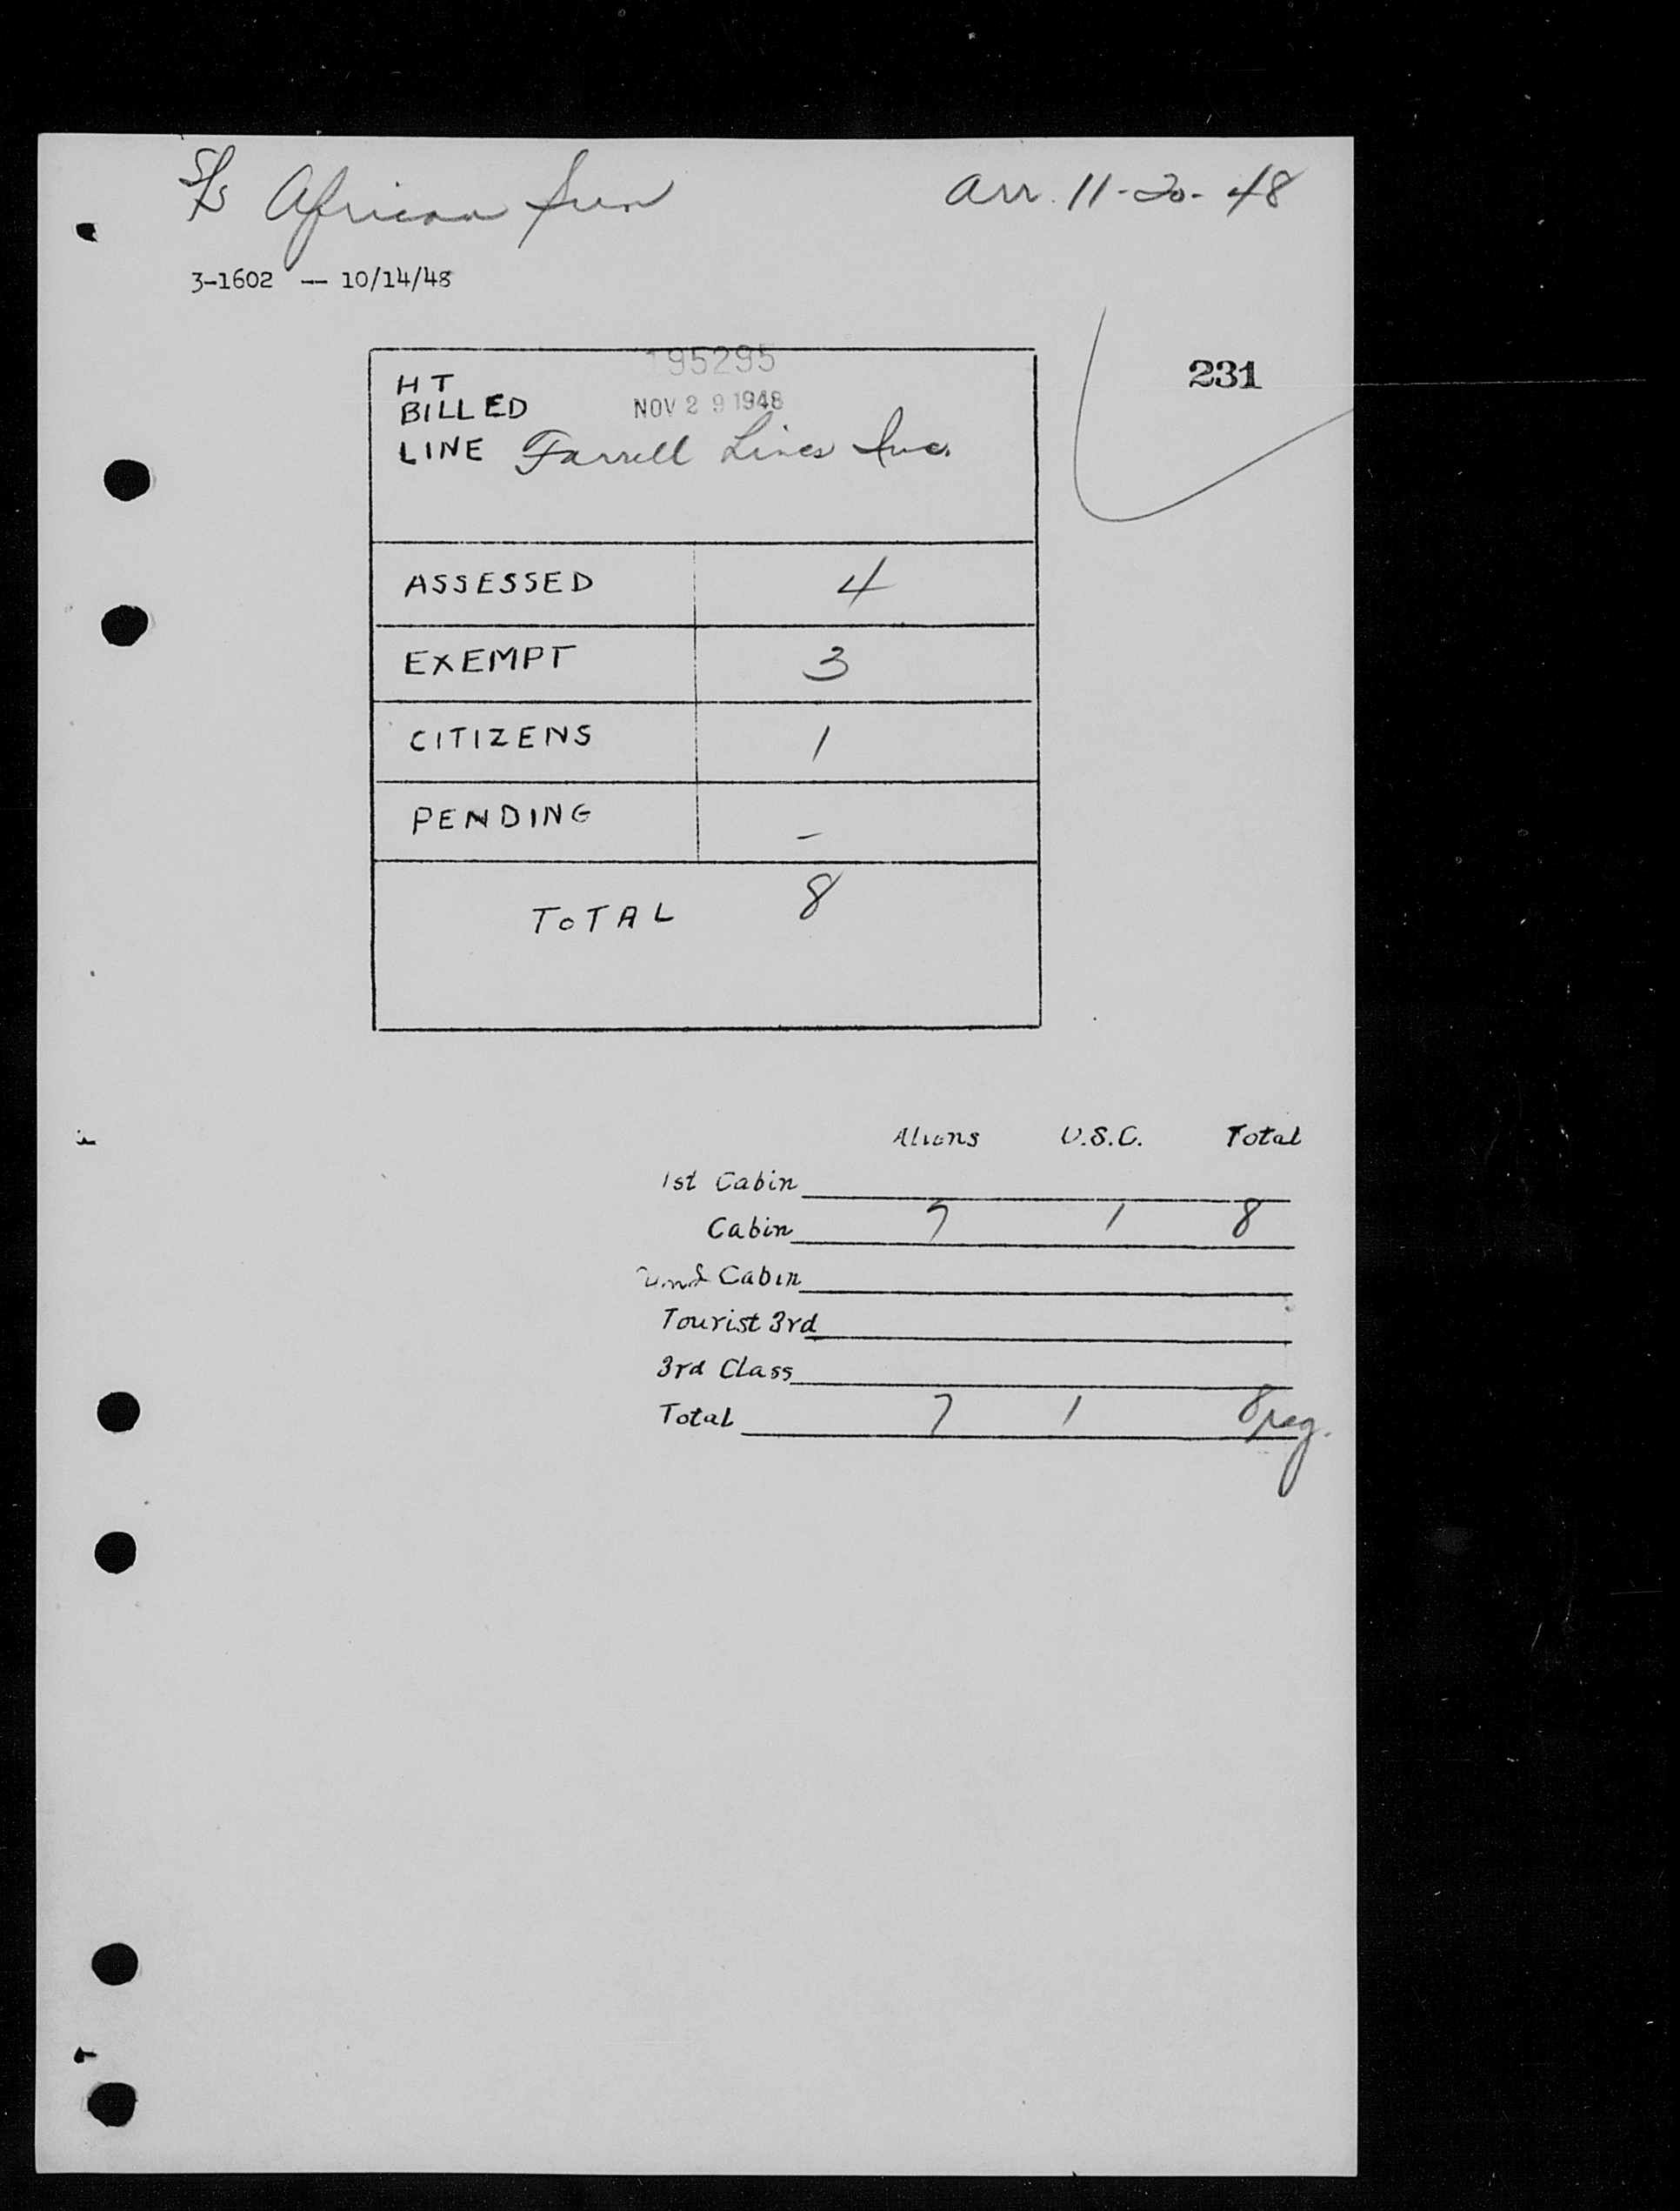 S/S African Sun Arr. 11-20-48
3-1602 -- 10/14/48
231
195295
HT
BILLED NOV 29 1948
LINE Farrell Lines Inc.
ASSESSED 4
EXEMPT 3
CITIZENS 1
PENDING -
TOTAL 8
Aliens U.S.C. Total
1st Cabin
Cabin 7 1 8
Cabin
Tourist 3rd
3rd Class
Total 7 1 8